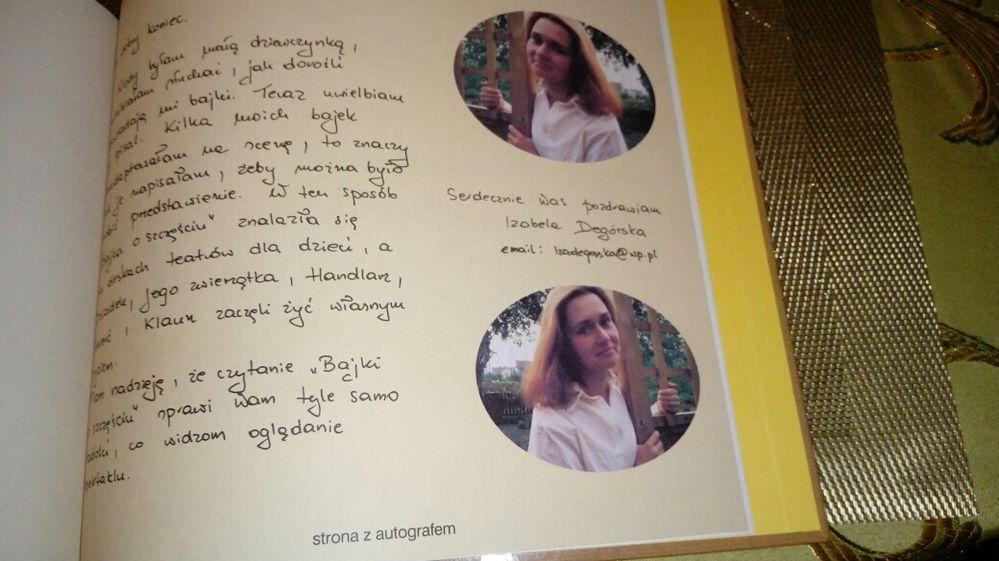 żeby koniec.
Kiedy byłam małą dziewczynką,
słuchać, jak dorośli
mi bajki. Teraz uwielbiam
pisać. Kilka moich bajek
na scenę, to znaczy
je napisałam, żeby można było
przedstawienie. W ten sposób
o szczęściu" znalazła się
deskach teatrów dla dzieci, a
jego zwierzątka, Handlarz,
i Klaun zaczęli żyć własnym
nadzieję, że czytanie „Bajki
szczęściu" sprawi Wam tyle samo
co widzom oglądanie
Serdecznie Was pozdrawiam
Izabela Degórska
email: izadegorska@wp.pl
strona z autografem